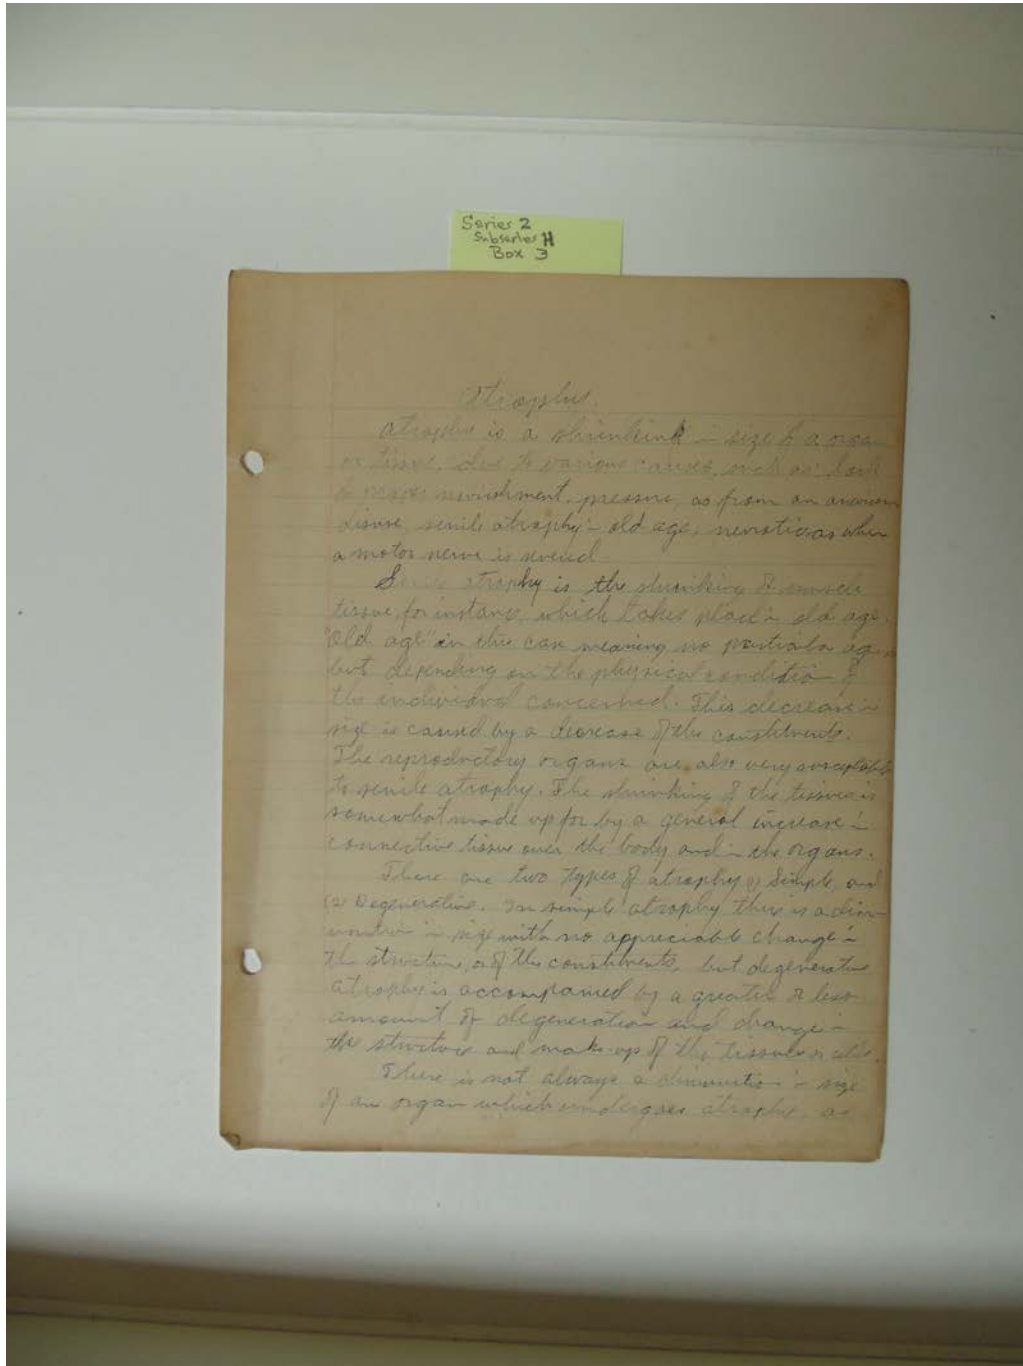 Series 2
Subseries H
Box 3
Atrophy.
Atrophy is a shrinking in size of a organ
or tissue, due to various causes, such as: lack
of proper nourishment, pressure, as from an aneurism
disuse, senile atrophy - old age, neurotic as when
a motor nerve is severed
Senile atrophy is the shrinking of muscle
tissue, for instance, which takes place in old age.
"Old age" in this case meaning no particular age
but depending on the physical condition of
the individual concerned. This decrease in
size is caused by a decrease of the constituents.
The reproductory organs are also very susceptable
to senile atrophy. The shrinking of the tissues is
somewhat made up for by a general increase in
connective tissue over the body and in the organs.
There are two types of atrophy Simple, and
(2 Degenerative. In simple atrophy there is a dim-
inution in size with no appreciable change in
the structure, or of the constituents, but degenerative
atrophy is accompanied by a greater or less
amount of degeneration and change in
the structure and make-up of the tissues or cells.
There is not always a diminution in size
of an organ which undergoes atrophy, as